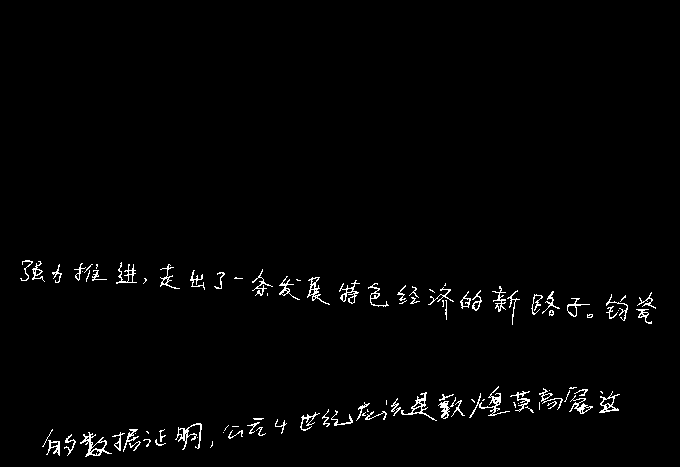 强力推进,走出了一条发展特色经济的新路子。钧瓷
的数据证明,公元4世纪应该是敦煌莫高窟这